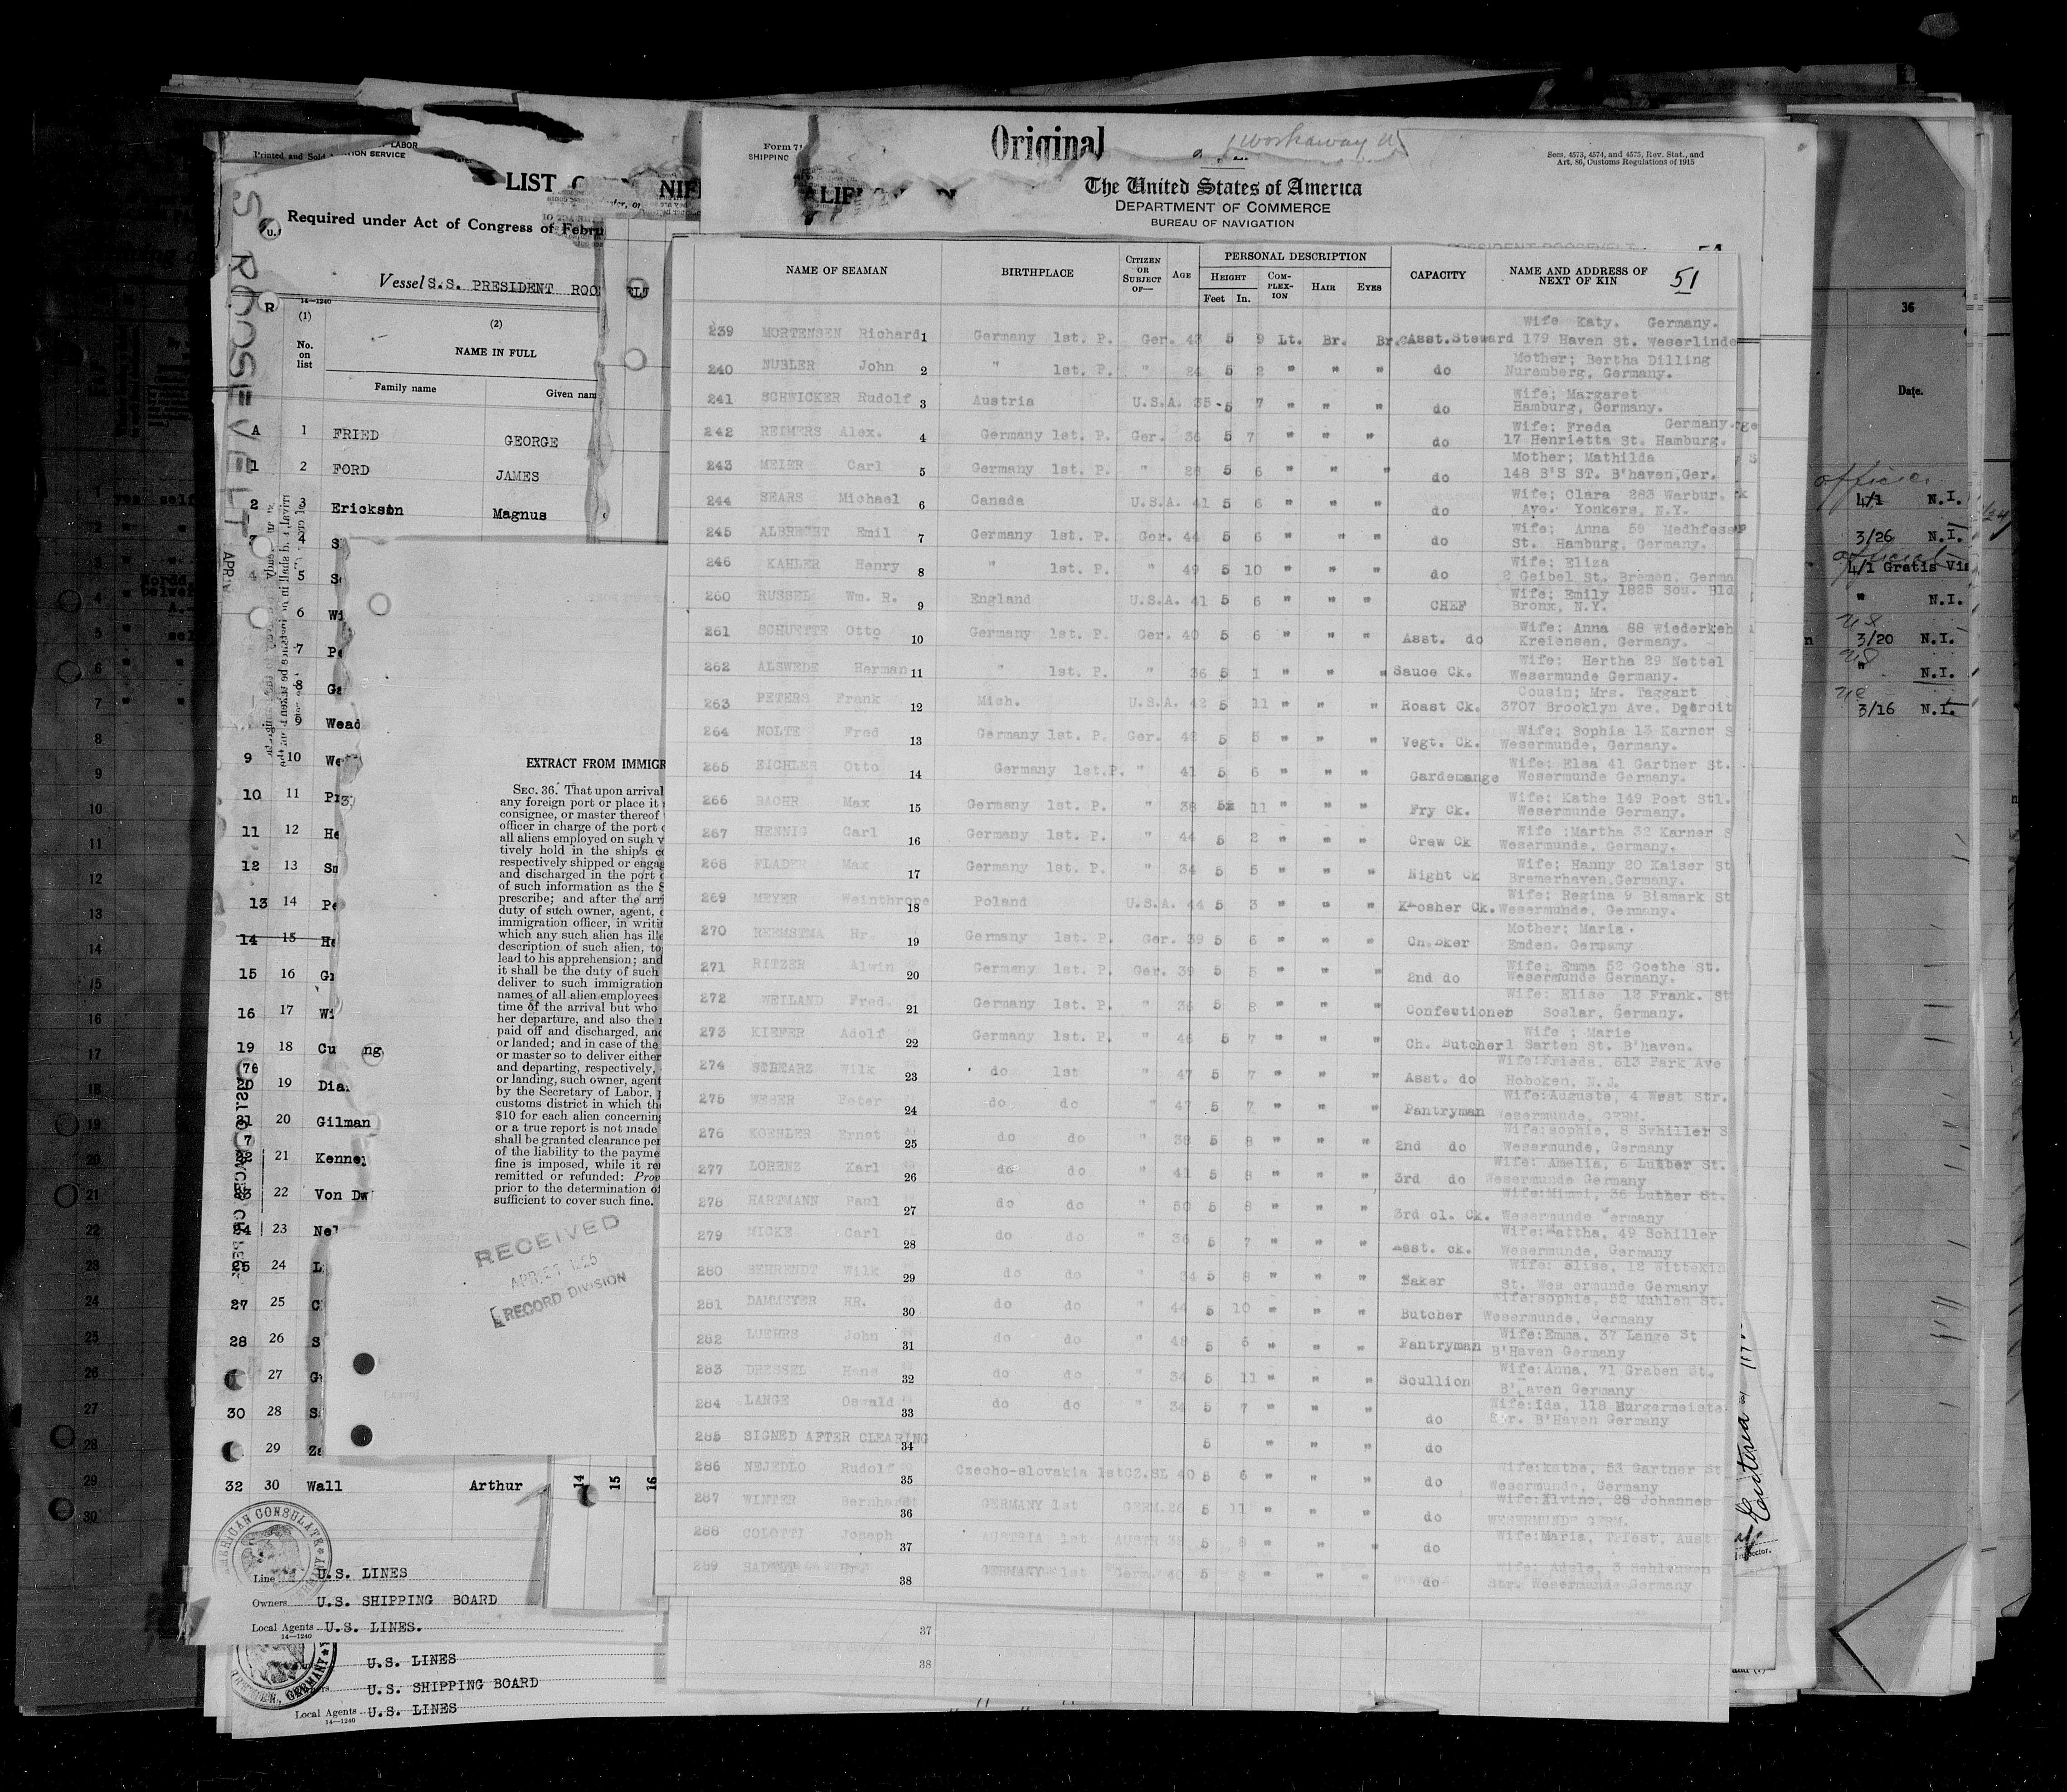 Printed and Sold
LABOR
TION SERVICE
LIST
NIF
ALIF
Required under Act of Congress of Febru
Vessel S.S. PRESIDENT ROO
S. ROOSEVELT
14—1240
(1)
(2)
No. on list
NAME IN FULL
Family name
Given nam
A 1 FRIED GEORGE
1 2 FORD JAMES
2 3 Erickson Magnus
4 S
4 5 Se
6 Wi
7 Pe
8 Ga
9 Wead
9 10 We
10 11 Pr
11 12 He
12 13 Sm
13 14 Pe
14 15 He
15 16 Gr
16 17 Wi
19 18 Cu ng
76
20 19 Dia
21 20 Gilman
7
22 21 Kenne
23 22 Von Dw
24 23 Nel
25 24 L
27 25 C
28 26 S
27 G
30 28 S
29 Ze
32 30 Wall Arthur
14 15 16
AMERICAN CONSULATE
Line U.S. LINES
Owners U.S. SHIPPING BOARD
Local Agents U.S. LINES.
14—1240
U.S. LINES
U.S. SHIPPING BOARD
Local Agents U.S. LINES
14—1240
EXTRACT FROM IMMIGR
SEC. 36. That upon arrival
any foreign port or place it
consignee, or master thereof
officer in charge of the port
all aliens employed on such v
tively hold in the ship's c
respectively shipped or engag
and discharged in the port
of such information as the S
prescribe; and after the arr
duty of such owner, agent,
immigration officer, in writin
which any such alien has ille
description of such alien, to
lead to his apprehension; and
it shall be the duty of such
deliver to such immigration
names of all alien employees
time of the arrival but who
her departure, and also the
paid off and discharged, and
or landed; and in case of the
or master so to deliver either
and departing, respectively,
or landing, such owner, agent
by the Secretary of Labor,
customs district in which the
$10 for each alien concerning
or a true report is not made
shall be granted clearance per
of the liability to the payme
fine is imposed, while it re
remitted or refunded: Prov
prior to the determination of
sufficient to cover such fine.
RECEIVED
RECORD DIVISION
Form 71
SHIPPING
Original
Workaway
Secs. 4573, 4574, and 4575, Rev. Stat., and
Art. 86, Customs Regulations of 1915
The United States of America
DEPARTMENT OF COMMERCE
BUREAU OF NAVIGATION
NAME OF SEAMAN
BIRTHPLACE
CITIZEN OR SUBJECT OF—
AGE
PERSONAL DESCRIPTION
HEIGHT
Feet In.
COM-PLEX-ION
HAIR
EYES
CAPACITY
NAME AND ADDRESS OF NEXT OF KIN
51
Wife Katy. Germany.
239 MORTENSEN Richard 1 Germany 1st. P. Ger. 43 5 9 Lt. Br. Br. Asst.Steward 179 Haven St. Weserlinde
Mother; Bertha Dilling
240 NUBLER John 2 " 1st. P. " 24 5 2 " " " do Nuremberg, Germany.
Wife; Margaret
241 SCHWICKER Rudolf 3 Austria U.S.A. 35 5 7 " " " do Hamburg, Germany.
Wife: Freda Germany.
242 REIMERS Alex. 4 Germany 1st. P. Ger. 36 5 7 " " " do 17 Henrietta St. Hamburg.
Mother; Mathilda
243 MEIER Carl 5 Germany 1st. P. " 28 5 6 " " " do 148 B'S ST. B'haven,Ger.
Wife; Clara 283 Warbur.
244 SEARS Michael 6 Canada U.S.A. 41 5 6 " " " do Ave. Yonkers, N.Y.
Wife; Anna 59 Medhfesse
245 ALBRECHT Emil 7 Germany 1st. P. Ger. 44 5 6 " " " do St. Hamburg, Germany.
Wife; Eliza
246 KAHLER Henry 8 " 1st. P. " 49 5 10 " " " do 2 Geibel St. Bremen, Germa
Wife; Emily 1825 Sou. Bld
260 RUSSEL Wm. R. 9 England U.S.A. 41 5 6 " " " CHEF Bronx, N.Y.
Wife: Anna 88 Wiederkeh
261 SCHUETTE Otto 10 Germany 1st. P. Ger. 40 5 6 " " " Asst. do Kreiensen, Germany.
Wife: Hertha 29 Nettel
262 ALSWEDE Herman 11 " 1st. P. " 36 5 1 " " " Sauce Ck. Wesermunde Germany.
Cousin; Mrs. Taggart
263 PETERS Frank 12 Mich. U.S.A. 42 5 11 " " " Roast Ck. 3707 Brooklyn Ave. Detroit
Wife; Sophia 13 Karner S
264 NOLTE Fred 13 Germany 1st. P. Ger. 42 5 5 " " " Vegt. Ck. Wesermunde, Germany.
Wife: Elsa 41 Gartner St.
265 EICHLER Otto 14 Germany 1st.P. " 41 5 6 " " " Gardemange Wesermunde Germany.
Wife: Kathe 149 Post Stl.
266 BACHR Max 15 Germany 1st. P. " 38 5 11 " " " Fry Ck. Wesermunde Germany.
Wife :Martha 32 Karner S
267 HENNIG Carl 16 Germany 1st. P. " 44 5 2 " " " Crew Ck Wesermunde, Germany.
Wife; Hanny 20 Kaiser St
268 FLADER Max 17 Germany 1st. P. " 34 5 5 " " " Night Ck Bremerhaven,Germany.
Wife; Regina 9 Bismark St
269 MEYER Weinthrope 18 Poland U.S.A. 44 5 3 " " " Kosher Ck. Wesermunde, Germany.
Mother; Maria.
270 REEMSTMA Hr. 19 Germany 1st. P. Ger. 39 5 6 " " " Ch.Bker Emden. Germany
Wife: Emma 52 Goethe St.
271 RITZER Alwin 20 Germany 1st. P. Ger. 39 5 5 " " " 2nd do Wesermunde Germany.
Wife: Elise 12 Frank. St
272 WEILAND Fred. 21 Germany 1st. P. " 36 5 8 " " " Confectioner Soslar, Germany.
Wife ; Marie
273 KIEFER Adolf 22 Germany 1st. P. " 46 5 7 " " " Ch. Butcher 1 Sarten St. B'haven.
Wife:Frieda, 513 Park Ave
274 STBEARZ Wilk 23 do 1st " 47 5 7 " " " Asst. do Hoboken, N.J.
Wife:Auguste, 4 West Str.
275 WESER Peter 24 do do " 47 5 7 " " " Pantryman Wesermunde, GERM.
Wife:sophie, 8 Svhiller S
276 KOEHLER Ernst 25 do do " 38 5 8 " " " 2nd do Wesermunde, Germany
Wife: Amelia, 6 Luther St.
277 LORENZ Karl 26 do do " 41 5 8 " " " 3rd do Wesermunde Germany
Wife:Minni, 36 Luther St.
278 HARTMANN Paul 27 do do " 50 5 8 " " " 3rd cl. Ck. Wesermunde Germany
Wife:Mattha, 49 Schiller
279 MICKE Carl 28 do do " 36 5 7 " " " Asst. ck. Wesermunde, Germany
Wife: Elise, 12 Wittekin
280 BEHRENDT Wilk 29 do do " 34 5 8 " " " Baker St. Wes ermunde Germany
Wife:sophie, 52 Muhlen St.
281 DAMMEYER HR. 30 do do " 44 5 10 " " " Butcher Wesermunde, Germany
Wife:Emma, 37 Lange St
282 LUEHRS John 31 do do " 48 5 6 " " " Pantryman B'Haven Germany
Wife:Anna, 71 Graben St.
283 DRESSEL Hans 32 do do " 34 5 11 " " " Scullion B'Haven Germany
Wife:Ida, 118 Burgermeiste
284 LANGE Oswald 33 do do " 34 5 7 " " " do Str. B'Haven Germany
285 SIGNED AFTER CLEARING 34 5 " " " do
Wife:kathe, 53 Gartner St
286 NEJEDLO Rudolf 35 Czecho-slovakia 1st CZ.SL 40 5 6 " " " do Wesermunde, Germany
Wife:Elvine, 28 Johannes
287 WINTER Bernhardt 36 GERMANY 1st GERM.26 5 11 " " " do WESERMUND GERM.
Wife:Maria, Triest, Aust
288 COLOTTI Joseph 37 AUSTRIA 1st AUSTR 38 5 8 " " " do
Wife: Adele, 3
289 38 GERMANY 1st Germ. 40 5 8 " " " do Str. Wesermunde Germany
37
38
36
Date.
official
4/1 N.I.
3/26 N.I.
official
4/1 Gratis Vis
" N.I.
US
3/20 N.I.
US
" N.I.
US
3/16 N.I.
1
2
3
4
5
6
7
8
9
10
11
12
13
14
15
16
17
18
19
20
21
22
23
24
25
26
27
28
29
30